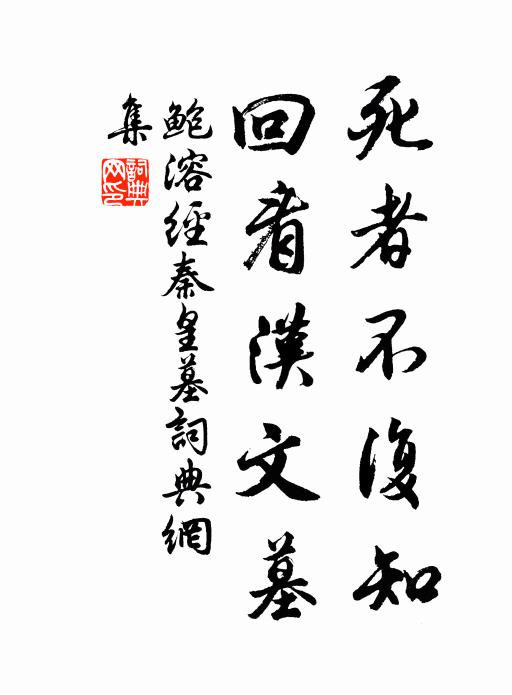 死者不復知
回看漢文墓
鮑溶經秦皇墓詞典網
集
詞典
网印